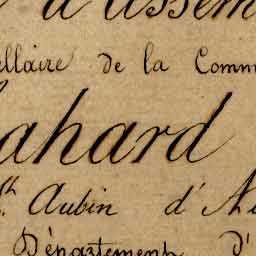 d'Assem
ellaire de la Comm
ahard
Aubin d'
Département d'